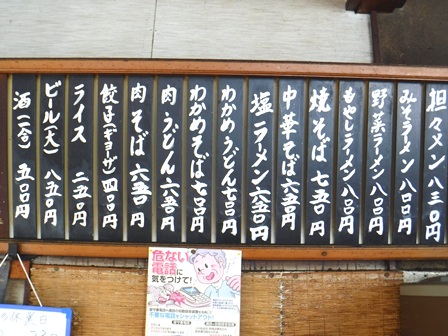 担タメン 八三〇円
みそラーメン 八〇〇円
野菜ラーメン 八〇〇円
もやしラーメン 八〇〇円
焼そば 七五〇円
中華そば 六五〇円
塩ラーメン 六五〇円
わかめうどん 七〇〇円
わかめそば 七〇〇円
肉うどん 六五〇円
肉そば 六五〇円
餃子(ギョーザ) 四〇〇円
ライス 二五〇円
ビール(大) 八五〇円
酒(一合) 五〇〇円
危ない
電話に
気をつけて!